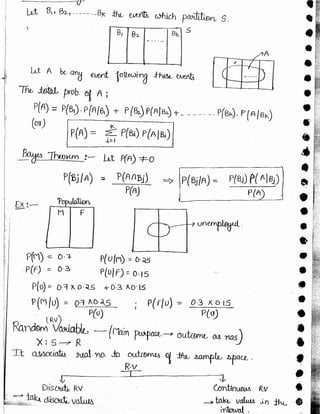 Let B₁, B₂, ------ Bₖ the events which partition S.
B₁ B₂ ---- Bₖ S
A
Let A be any event following these events
The total prob. of A ;
P(A) = P(B₁)·P(A/B₁) + P(B₂)P(A|B₂) + - - - - - - P(Bₖ)·P(A|Bₖ)
(or)
P(A) = Σ P(Bᵢ) P(A|Bᵢ)
k
i=1
Bayes Theorem :- Let P(A) ≠ 0
P(Bj|A) = P(A∩Bj) / P(A) ⇒ P(Bj/A) = P(Bj) P(A|Bj) / P(A)
Ex :— Population
M F
unemployed.
P(M) = 0.7 P(U|M) = 0.25
P(F) = 0.3 P(U|F) = 0.15
P(U) = 0.7 x 0.25 + 0.3 x 0.15
P(M|U) = 0.7 x 0.25 / P(U) ; P(F|U) = 0.3 x 0.15 / P(U)
(RV)
Random Variable — (Main purpose → outcome as nos)
X : S → R
It associates real no. to outcomes of the sample space.
R.V
Discrete RV Continuous RV
→ take discrete values → take values in the
interval.